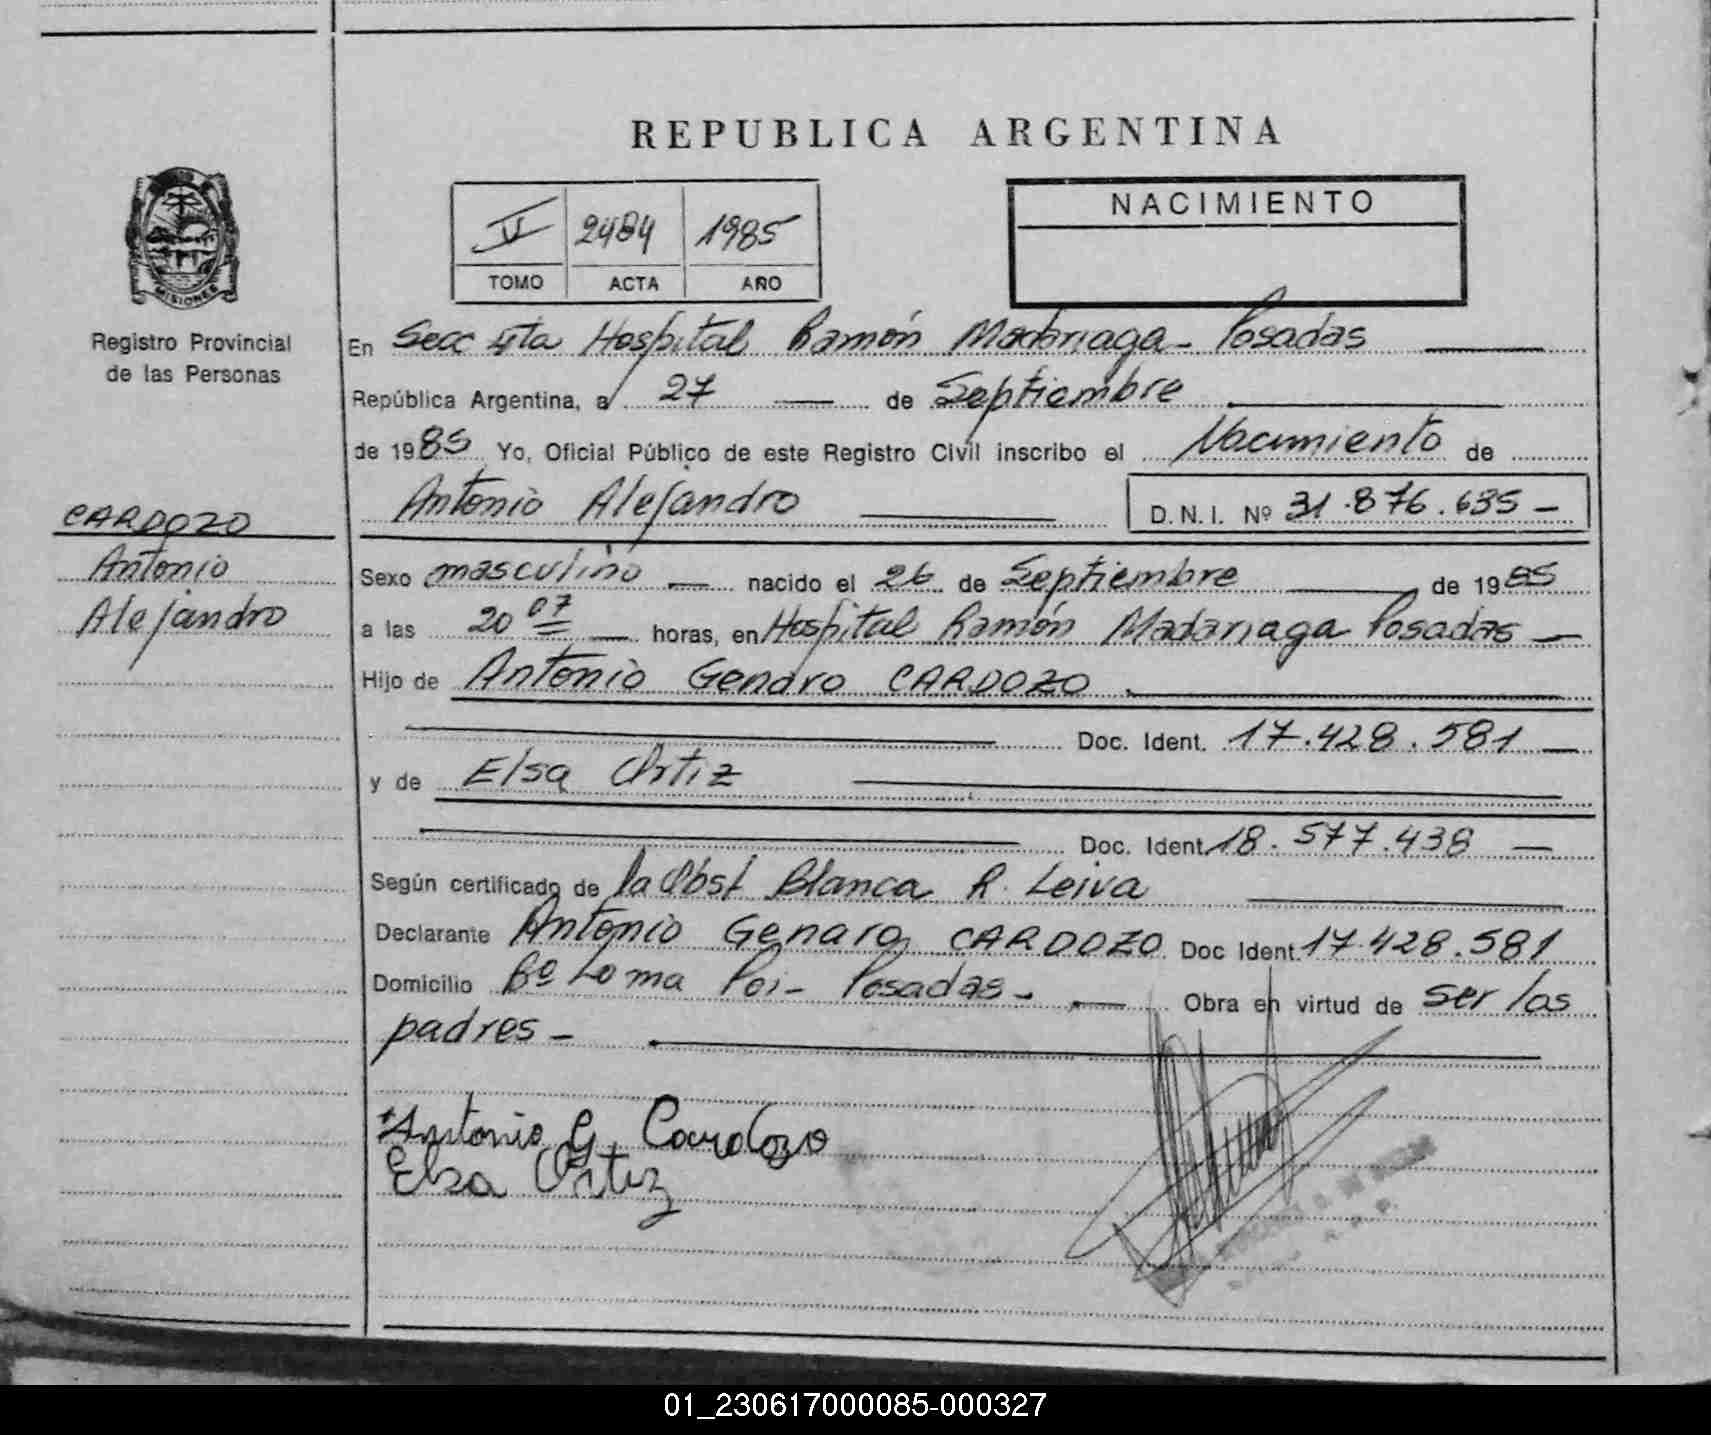 REPUBLICA ARGENTINA
NACIMIENTO
2484 1985
TOMO ACTA AÑO
MISIONES
Registro Provincial
de las Personas
CARDOZO
Antonio
Alejandro
En Secc 4ta Hospital Ramón Madariaga - Posadas
República Argentina, a 27 de Septiembre
de 1985 Yo, Oficial Público de este Registro Civil inscribo el Nacimiento de
Antonio Alejandro D.N.I. Nº 31.876.635 -
Sexo masculino nacido el 26 de Septiembre de 1985
a las 20 07 horas, en Hospital Ramón Madariaga Posadas -
Hijo de Antonio Genaro CARDOZO
Doc. Ident. 17.428.581
y de Elsa Ortiz
Doc. Ident. 18.577.438
Según certificado de la Obst Blanca R. Leiva
Declarante Antonio Genaro CARDOZO Doc Ident. 17.428.581
Domicilio Bº Loma Poi - Posadas - Obra en virtud de ser los
padres -
Antonio G. Cardozo
Elsa Ortiz
01_230617000085-000327